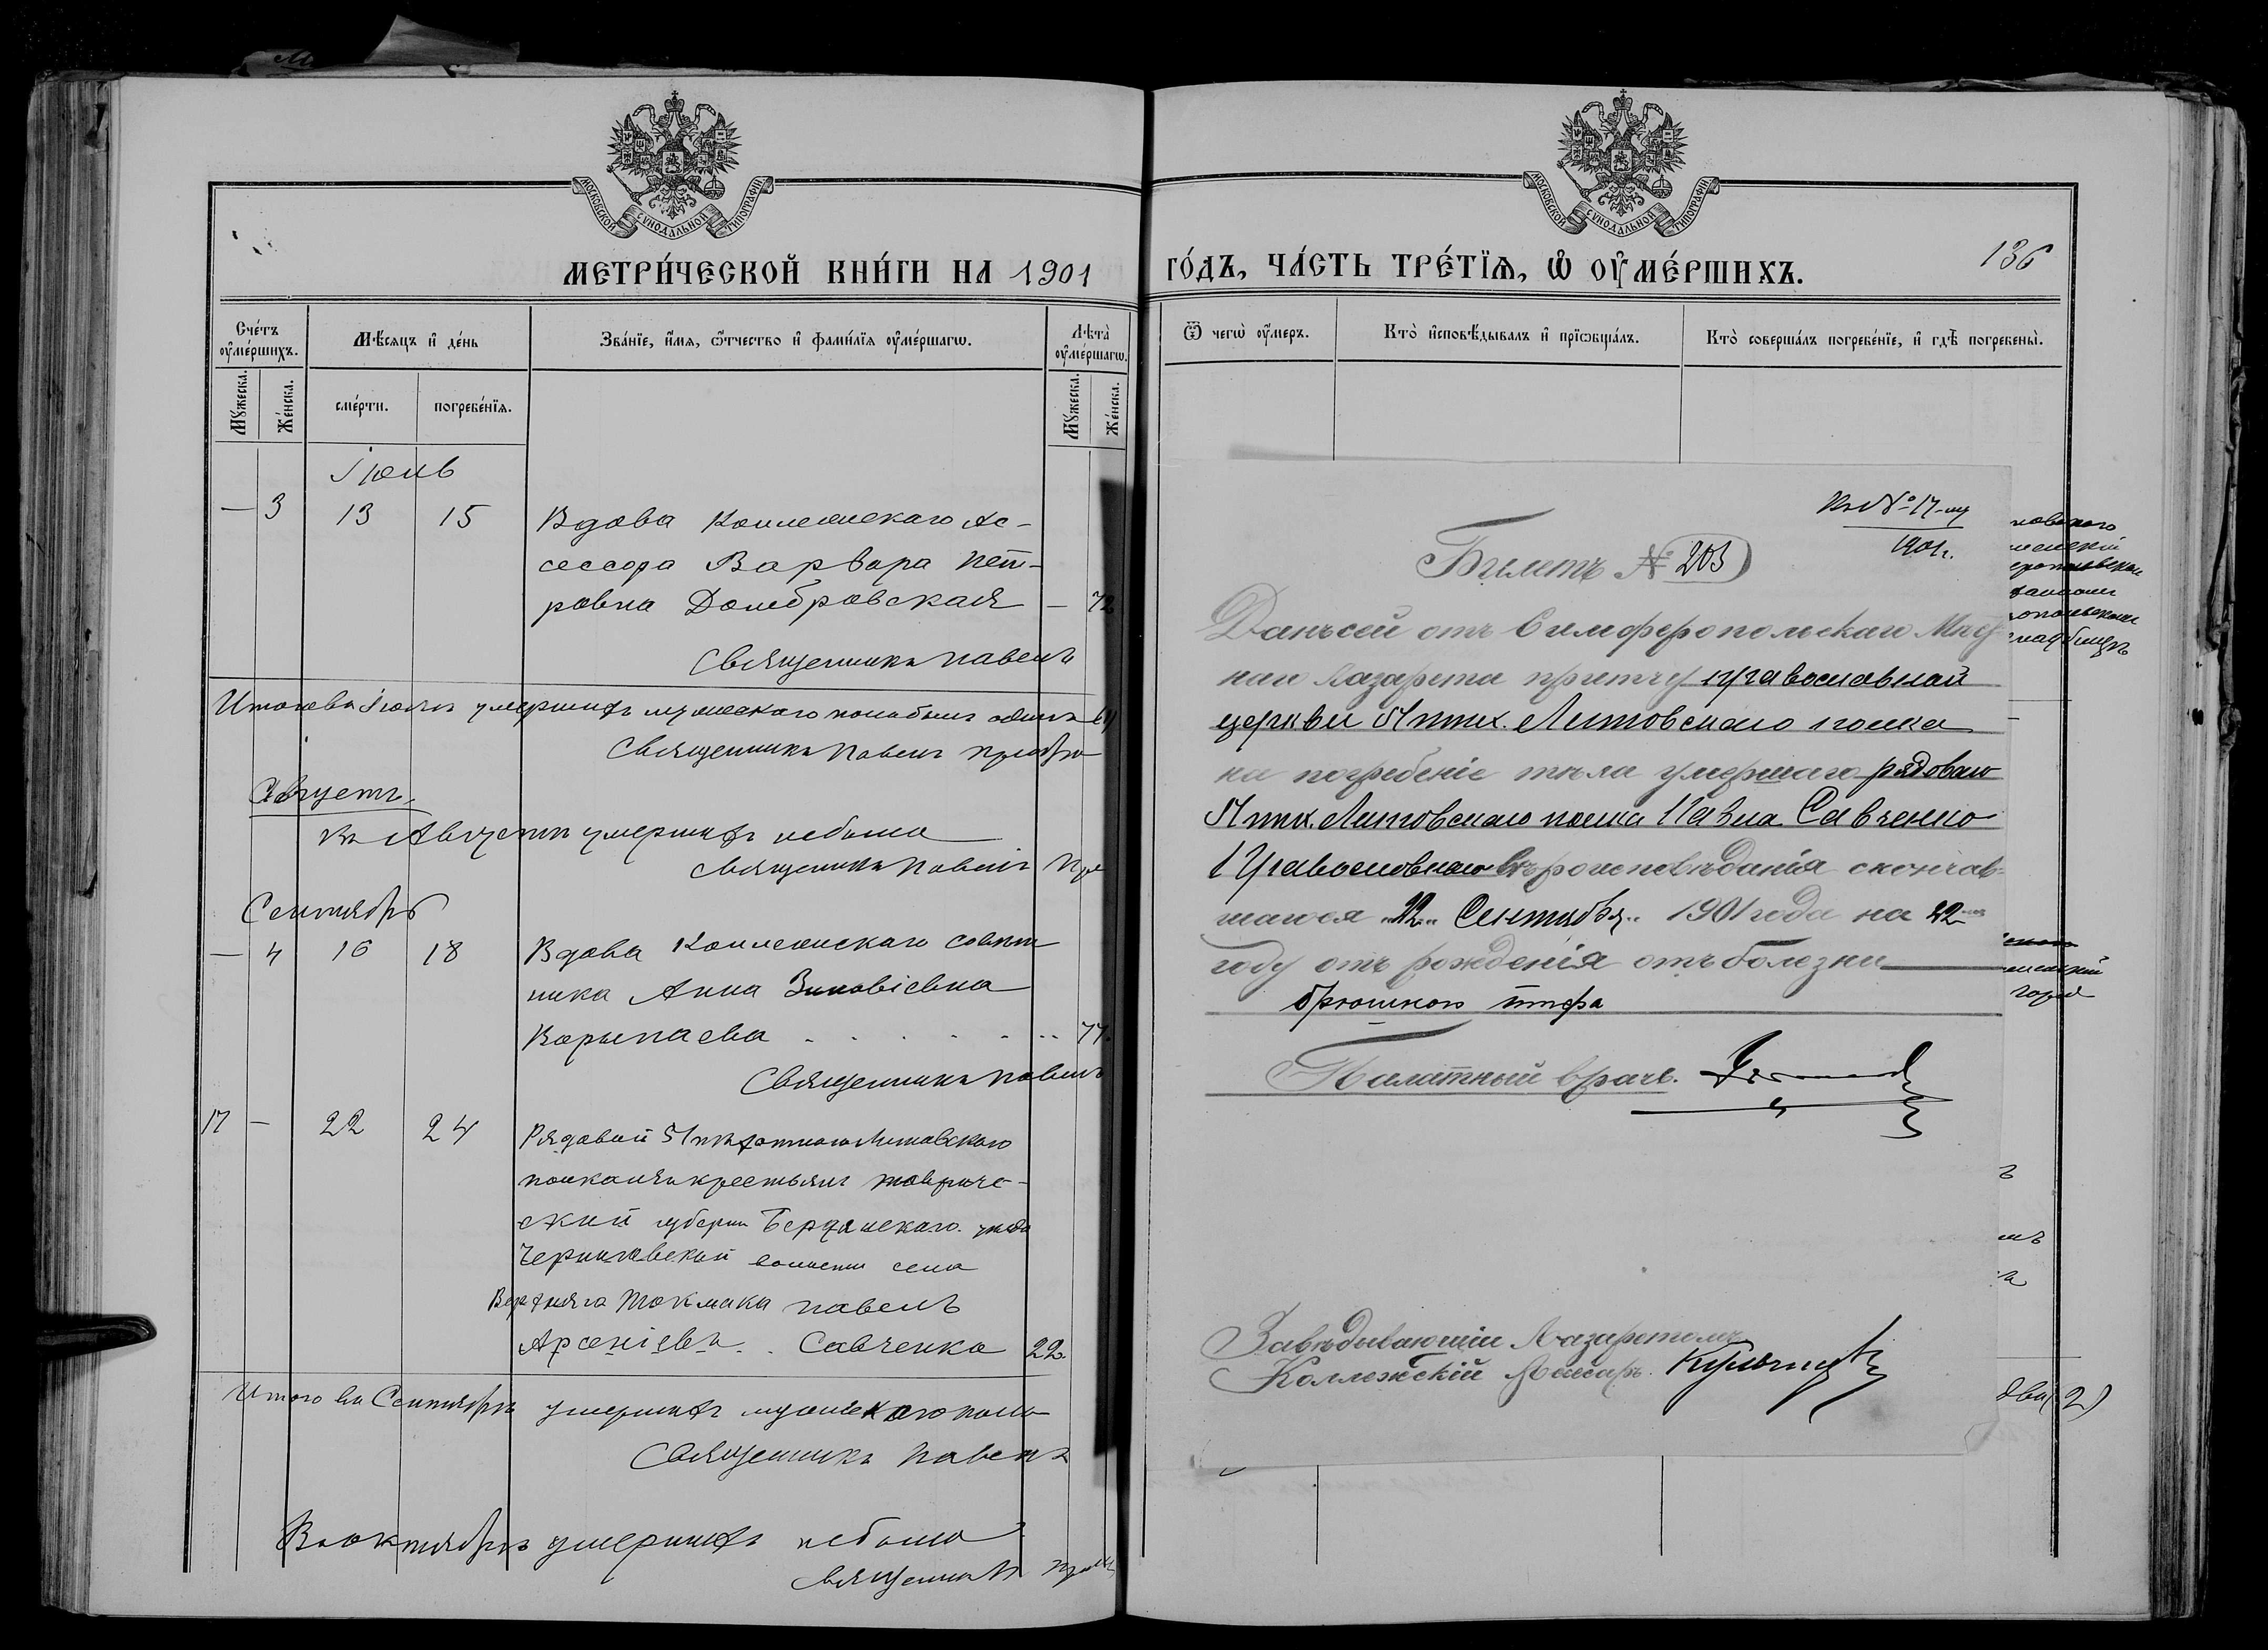 МОСКОВСКОЙ СѴНОДАЛЬНОЙ ТИПОГРАФІИ
МЕТРИ́ЧЕСКОЙ КНИ́ГИ НА 1901
Сче́тъ ᲂу҆ме́ршихъ.
Мѣ́сѧцъ и҆ де́нь
Зва́нїе, и҆́мѧ, ѻ҆́тчество и҆ фами́лїѧ ᲂу҆ме́ршагѡ.
Лѣ́та ᲂу҆ме́ршагѡ.
Мꙋ́жеска.
Же́нска.
сме́рти.
погребе́нїѧ.
Мꙋ́жеска.
Же́нска.
Іюль
— 3 13 15 Вдова Коллежскаго Ас-
сессора Варвара Пет-
ровна Домбровская — 72
Священникъ Павелъ
Итого въ Іюлѣ умершихъ мужескаго пола былъ одинъ (1)
Священникъ Павелъ
Августъ.
Въ Августѣ умершихъ небыло
Священникъ Павелъ
Сентябрь
— 4 16 18 Вдова Коллежскаго совѣт
ника Анна Зиновіевна
Карыпаева 77.
Священникъ Павелъ
17 — 22 24 Рядовой 51 пѣхотнаго Литовскаго
полка изъ крестьянъ Тавриче-
ской губерніи Бердянскаго уѣзда
Черниговской волости села
Верхняго Токмака Павелъ
Арсеніевъ Савченко 22
Итого въ Сентябрѣ умершихъ мужескаго пола
Священникъ Павелъ
Въ октябрѣ умершихъ небыло
Священникъ
МОСКОВСКОЙ СѴНОДАЛЬНОЙ ТИПОГРАФІИ
ГО́ДЪ, ЧА́СТЬ ТРЕ́ТЇѦ, Ѽ ОУ҆МЕ́РШИХЪ.
136
Ѿ чегѡ̀ ᲂу҆́меръ.
Кто̀ и҆сповѣ́дывалъ и҆ прїѡбща́лъ.
Кто̀ соверша́лъ погребе́нїе, и҆ гдѣ̀ погребены̀.
Къ № 17-му
1901 г.
Билетъ № 203
Данъ сей отъ Симферопольскаго Мѣст-
наго Лазарета причту православной
церкви 51 пѣх. Литовскаго полка
на погребеніе тѣла умершаго рядоваго
51 пѣх. Литовскаго полка Павла Савченко
Православнаго вѣроисповѣданія скончав-
шагося „22„ Сентября 1901 года на 22
году отъ рожденія отъ болезни
брюшного тифа
Палатный врачъ.
Завѣдывающій Лазаретомъ
Коллежскій
два (2)